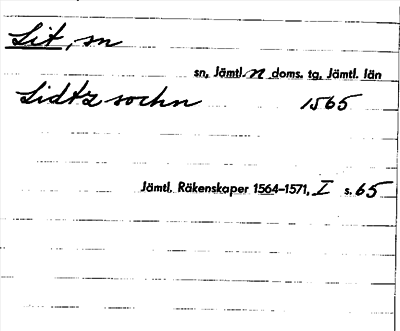 Lit, sn
sn, Jämtl. n doms. tg, Jämtl. län
Lidtz sochn 1565
Jämtl. Räkenskaper 1564–1571, I s. 65